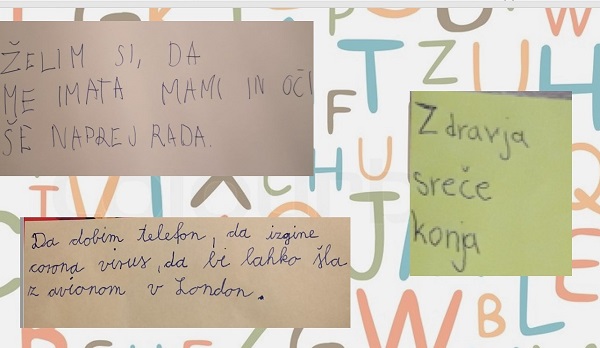 ŽELIM SI, DA
ME IMATA MAMI IN OČI
ŠE NAPREJ RADA.
Zdravja
sreče
konja
Da dobim telefon, da izgine
corona virus, da bi lahko šla
z avionom v London.